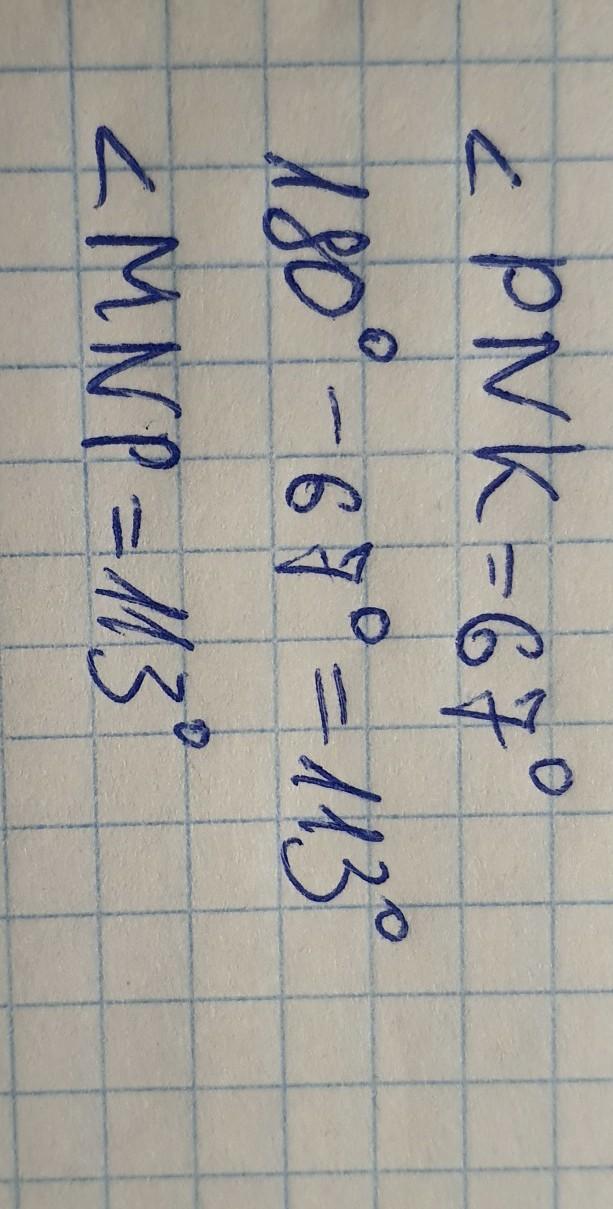 < PNK = 67°
180° - 67° = 113°
< MNP = 113°